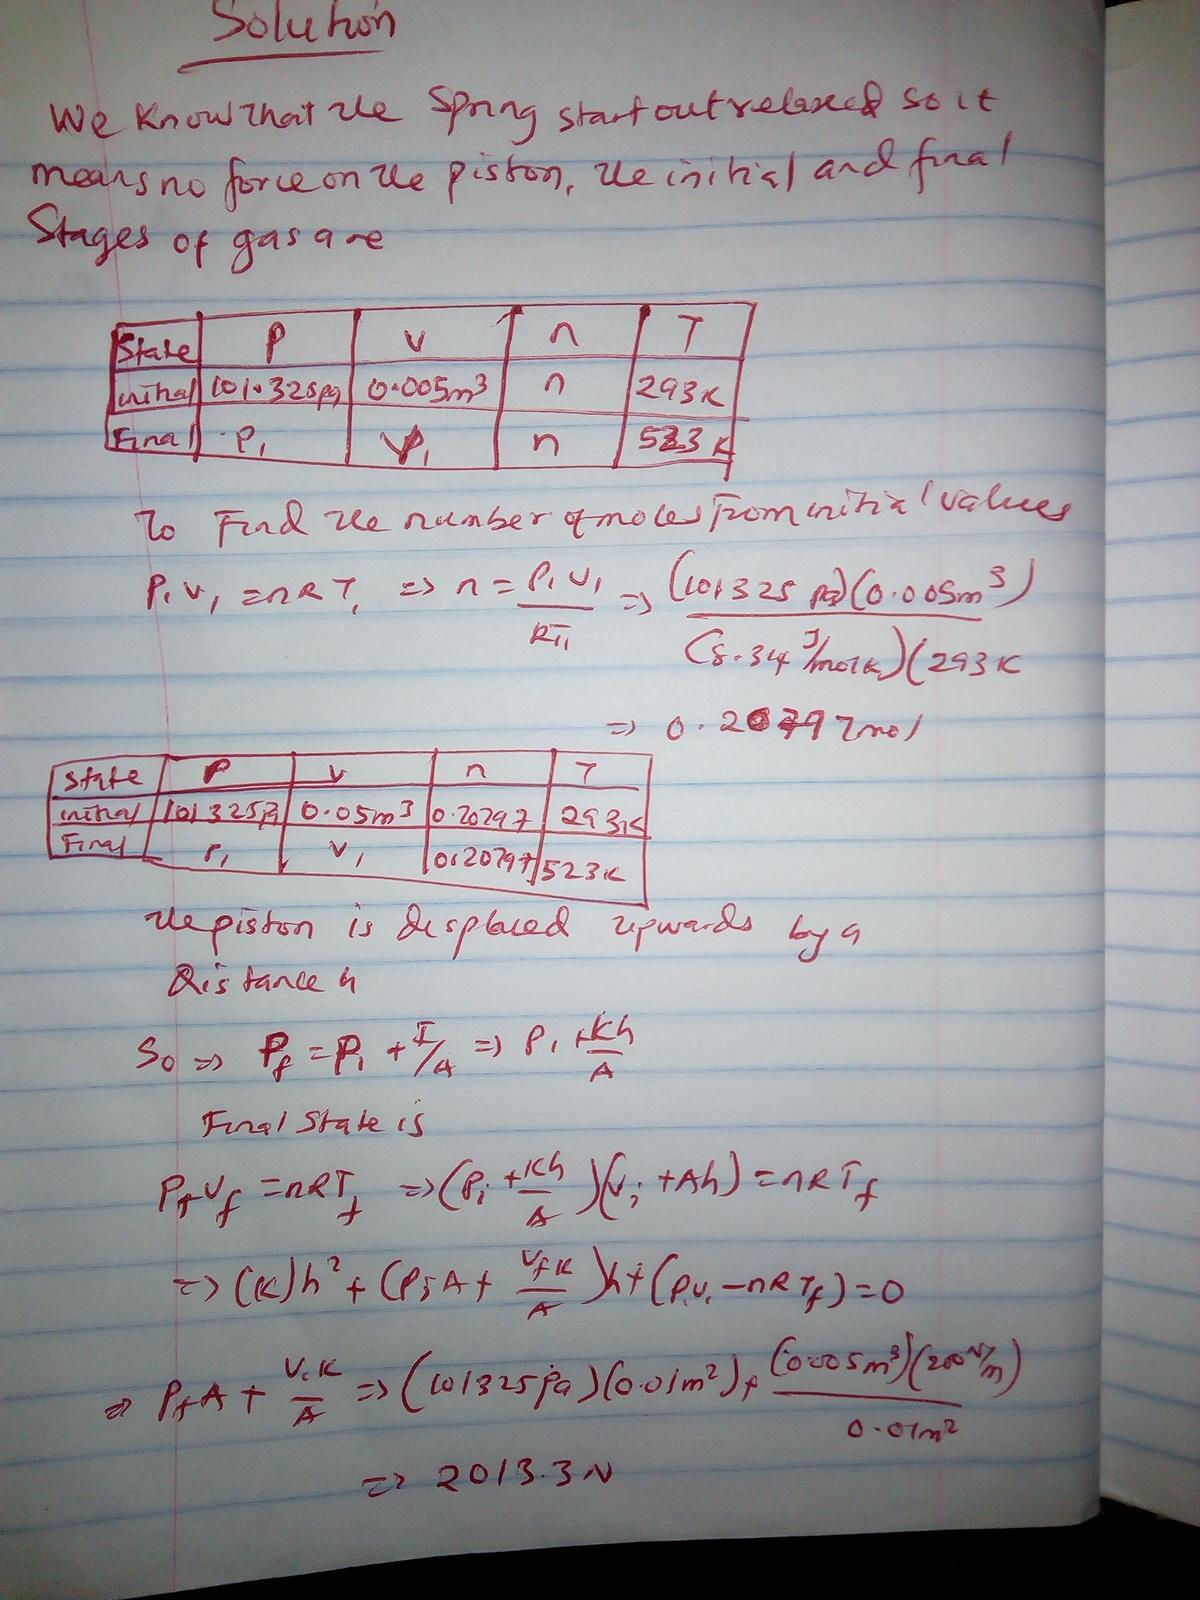 Solution
We Know that the Spring start out relaxed so it
means no force on the piston, the initial and final
Stages of gas are
State P V n T
initial 101.325pa 0.005m³ n 293K
Final P₁ V₁ n 523K
To Find the number of moles From initial values
P₁V₁ = nRT₁ => n = P₁V₁/RT₁ => (101325 pa)(0.005m³)/(8.34 J/molK)(293K
=> 0.20797mol
State P V n T
initial 101325pa 0.05m³ 0.20797 293K
Final P₁ V₁ 0.20797 523K
the piston is displaced upwards by a
Distance h
So => P_f = P_i + F/A => P_i + Kh/A
Final State is
P_fV_f = nRT_f => (P_i + Kh/A)(V_i + Ah) = nRT_f
=> (K)h² + (P_iA + V_fK/A)h + (P_iV_i - nRT_f) = 0
=> P_fA + V_iK/A => (101325pa)(0.01m²) + (0.005m³)(2000N/m)/0.01m²
=> 2013.3N